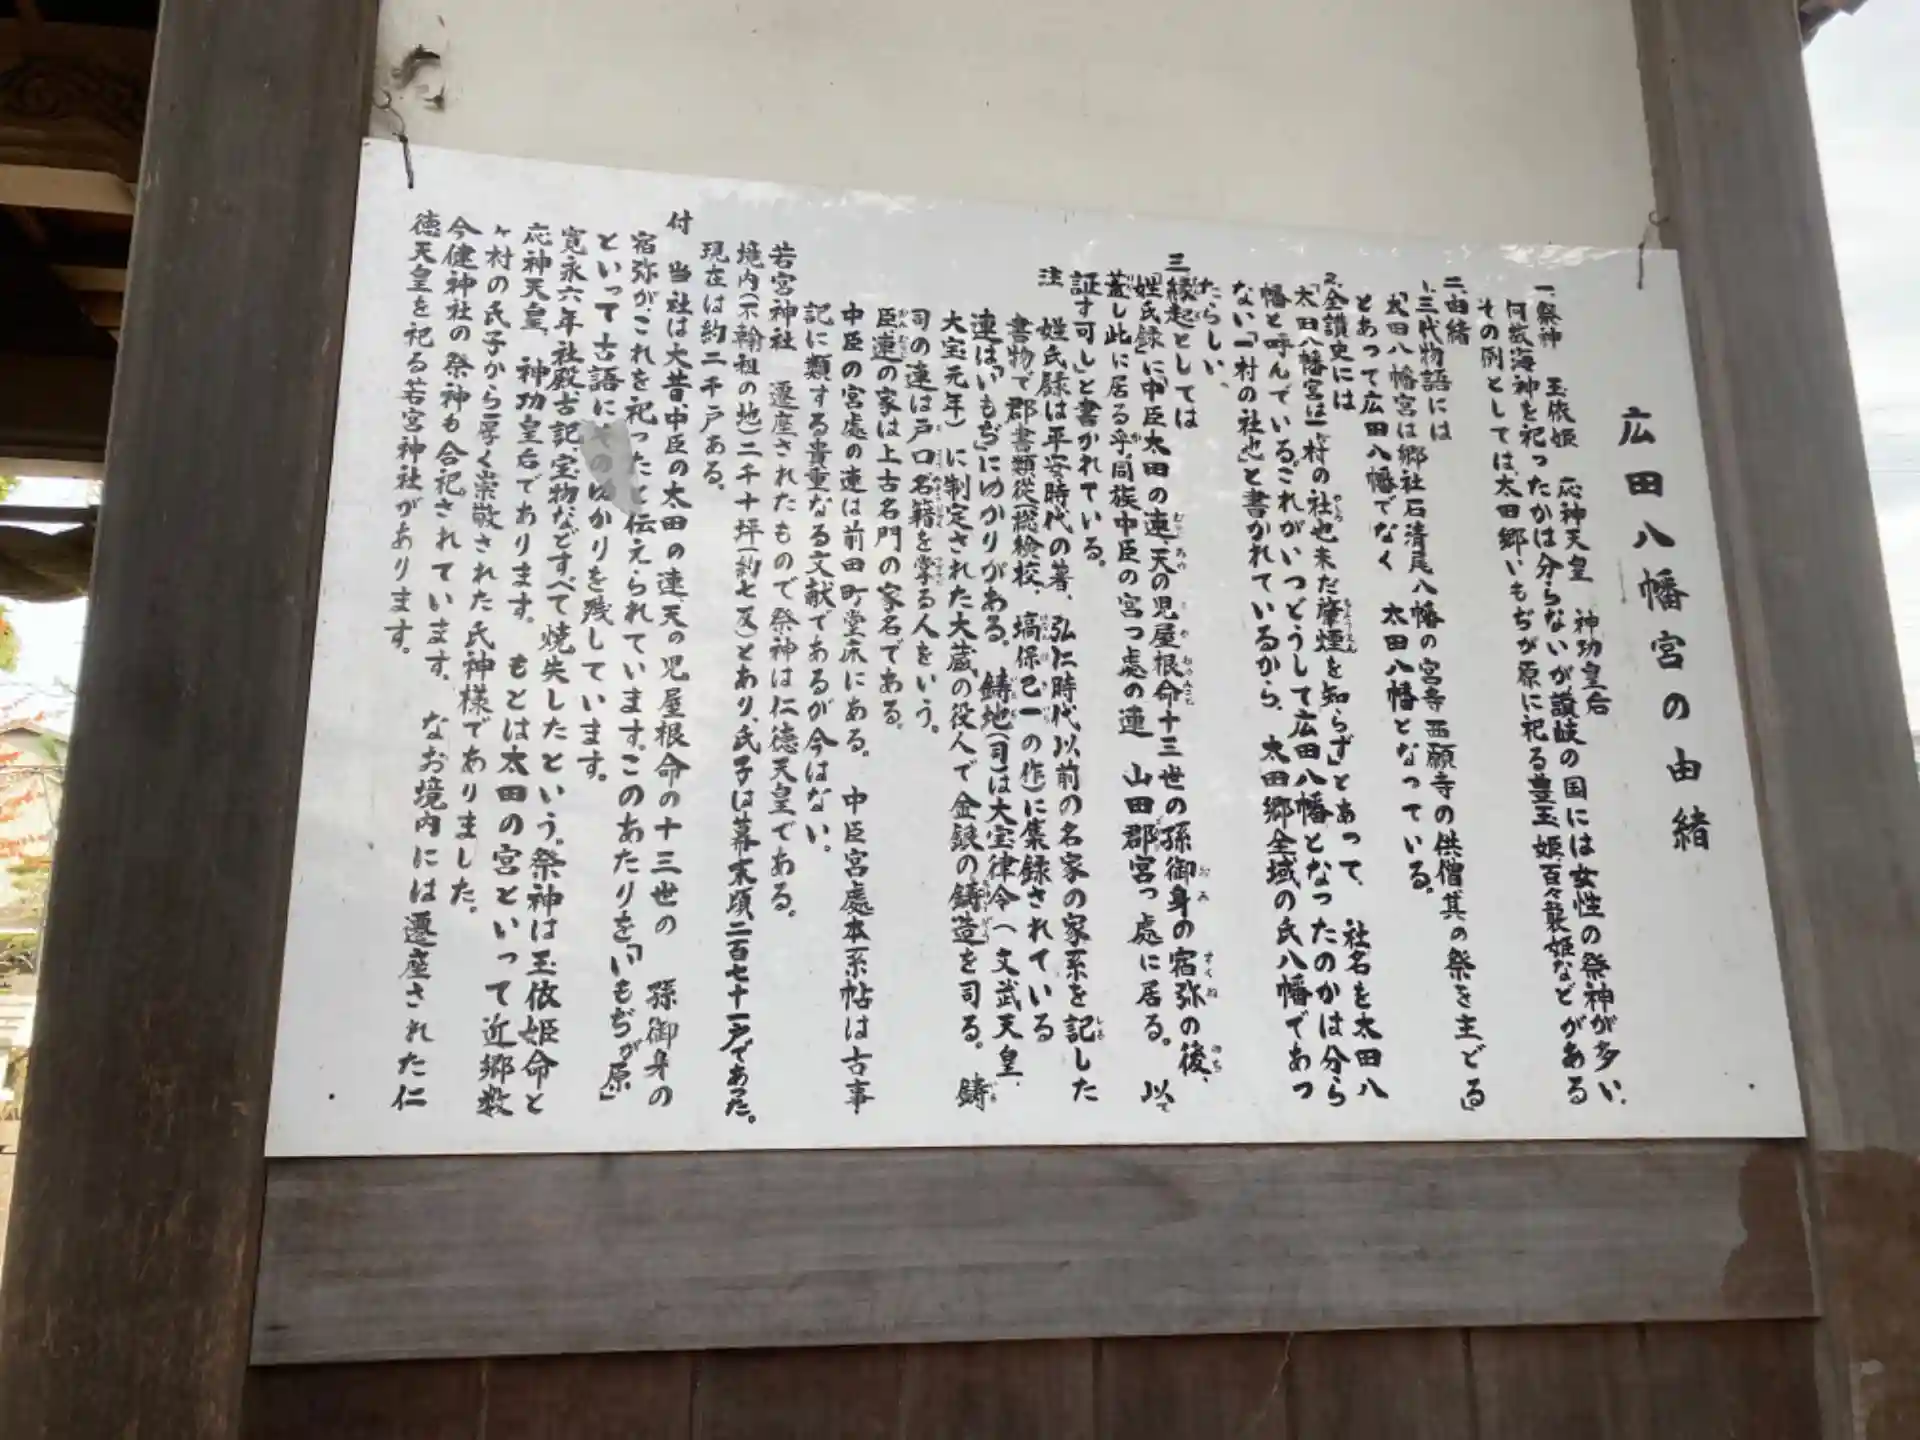 広田八幡宮の由緒
一、祭神 玉依姫 応神天皇 神功皇后
何故海神を祀ったかは分らないが讃岐の国には女性の祭神が多い、
その例としては、太田郷いもぢが原に祀る豊玉姫百々襲姫などがある
二、由緒
1.三代物語には
「太田八幡宮は郷社石清尾八幡の宮寺西願寺の供僧其の祭を主どる」
とあって広田八幡でなく 太田八幡となっている。
2.全讃史には
「太田八幡宮は一村の社也未だ肇煙を知らず」とあって、社名を太田八
幡と呼んでいる。これがいつどうして広田八幡となったのかは分ら
ない「一村の社也」と書かれているから、太田郷全域の氏八幡であっ
たらしい、
三、縁起としては
「姓氏録」に「中臣太田の連、天の児屋根命十三世の孫御身の宿弥の後、
蓋し此に居る乎、同族中臣の宮っ處の連 山田郡宮っ處に居る。以て
証す可し」と書かれている。
注 姓氏録は平安時代の著、弘仁時代以前の名家の家系を記した
書物で群書類従(総検校、塙保己一の作)に集録されている
連は「いもぢ」にゆかりがある。鋳地(司)は大宝律令(文武天皇、
大宝元年)に制定された大蔵の役人で金銀の鋳造を司る。鋳
司の連は戸口名籍を掌る人をいう。
臣連の家は上古名門の家名である。
中臣の宮處の連は前田町堂床にある。中臣宮處本系帖は古事
記に類する貴重なる文献であるが今はない。
若宮神社 遷座されたもので祭神は仁徳天皇である。
境内(不輸祖の地)二千十坪(約七反)とあり、氏子は幕末頃二百七十一戸であった。
現在は約二千戸ある。
付 当社は大昔、中臣の太田の連、天の児屋根命の十三世の 孫御身の
宿弥が、これを祀ったと伝えられています。このあたりを「いもぢが原」
といって古語にそのゆかりを残しています。
寛永六年社殿、古記宝物などすべて焼失したという。祭神は玉依姫命と
応神天皇、神功皇后であります。もとは太田の宮といって近郷数
ヶ村の氏子から厚く崇敬された氏神様でありました。
今健神社の祭神も合祀されています。なお境内には遷座された仁
徳天皇を祀る若宮神社があります。